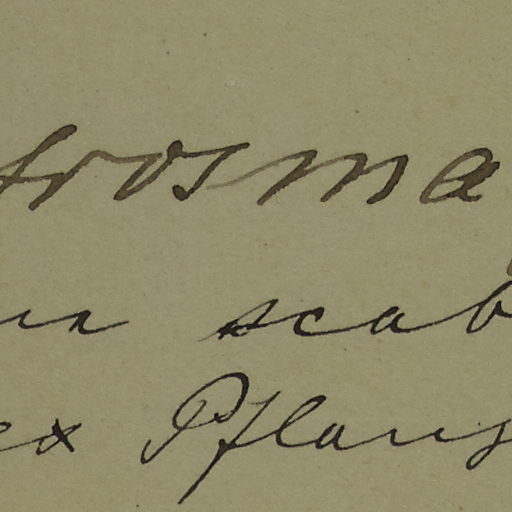 trosma
um scab
ex Pflanz